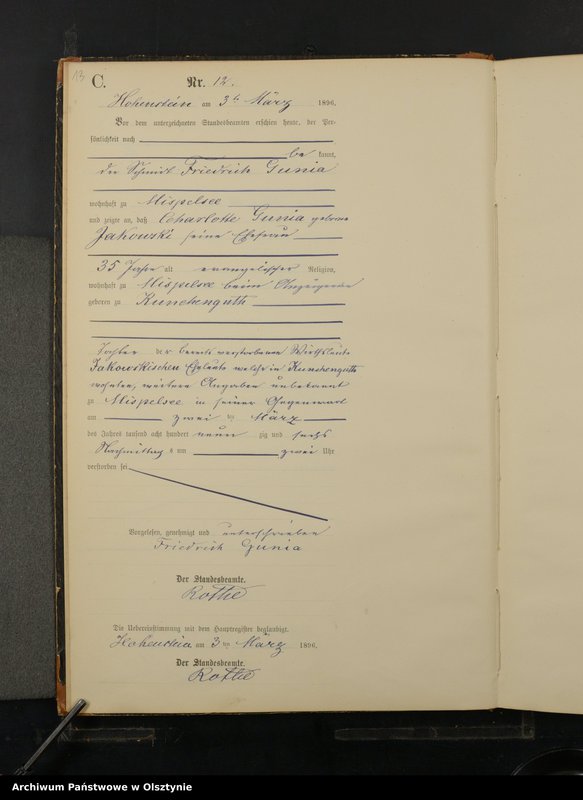 13
C.
Nr. 12.
Hohenstein am 3ten März 1896.
Vor dem unterzeichneten Standesbeamten erschien heute, der Per-
sönlichkeit nach
be kannt,
der Schmidt Friedrich Gunia
wohnhaft zu Mispelsee
und zeigte an, daß Charlotte Gunia geborene
Jakowski seine Ehefrau
35 Jahre alt evangelischer Religion,
wohnhaft zu Mispelsee beim Anzeigenden
geboren zu Kunchenguth
Tochter der bereits verstorbenen Wirthsleute
Jakowskischen Eheleute welche in Kunchenguth
wohnten, weitere Angaben unbekannt
zu Mispelsee in seiner Gegenwart
am zwei ten März
des Jahres tausend acht hundert neun zig und sechs
Nachmittag s um zwei Uhr
verstorben sei
Vorgelesen, genehmigt und unterschrieben
Friedrich Gunia
Der Standesbeamte.
Rothe
Die Uebereinstimmung mit dem Hauptregister beglaubigt.
Hohenstein am 3ten März 1896.
Der Standesbeamte.
Rothe
Archiwum Państwowe w Olsztynie